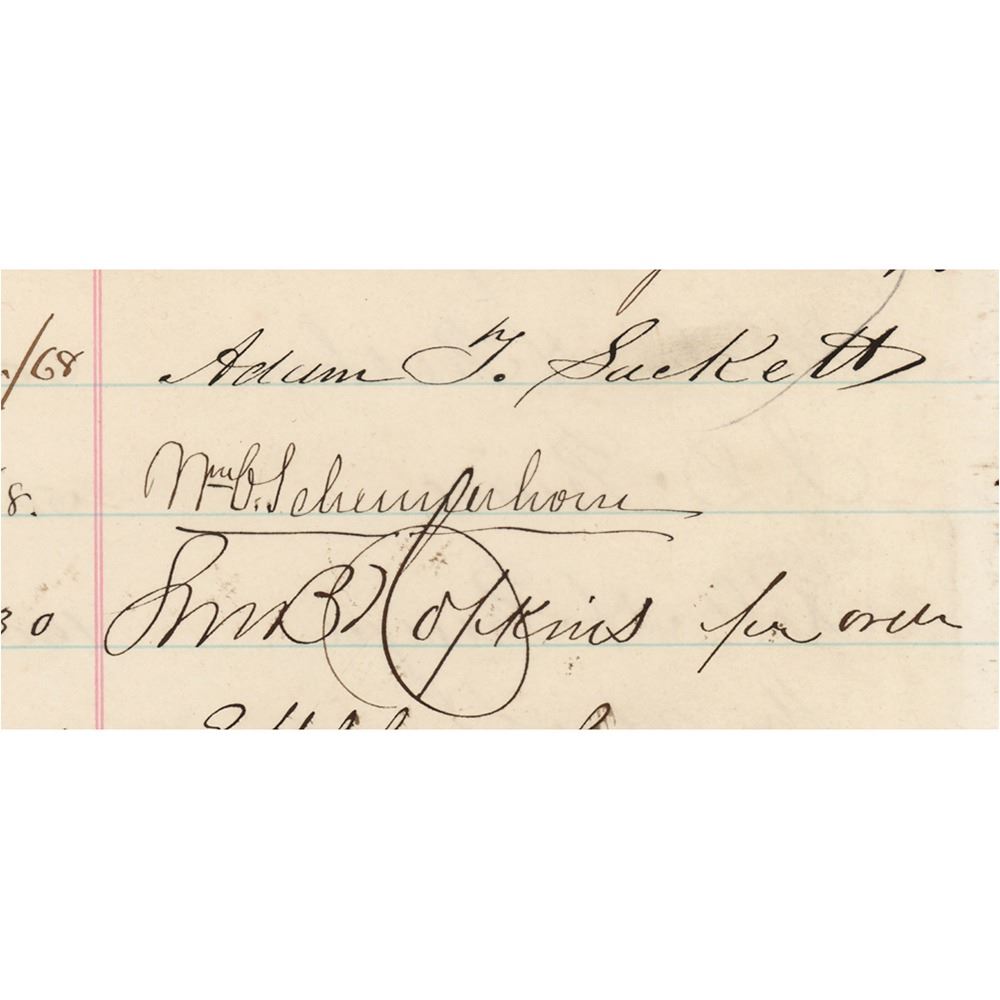 /68 Adam T. Sackett
8. Wm C. Schemerhorn
30 Wm B Hopkins per order